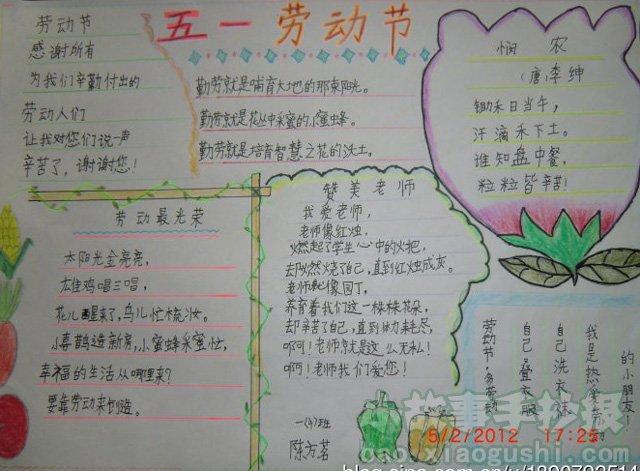 五一劳动节
劳动节
感谢所有
为我们辛勤付出的
劳动人们
让我对您们说一声
辛苦了，谢谢您！
勤劳就是哺育大地的那束阳光。
勤劳就是花丛中采蜜的小蜜蜂。
勤劳就是培育智慧之花的沃土。
悯 农
（唐）李绅
锄禾日当午，
汗滴禾下土。
谁知盘中餐，
粒粒皆辛苦！
劳动最光荣
太阳光金亮亮，
雄鸡唱三唱，
花儿醒来了，鸟儿忙梳妆。
小喜鹊造新房，小蜜蜂采蜜忙，
幸福的生活从哪里来？
要靠劳动来创造。
赞美老师
我爱老师，
老师像红烛，
燃起了学生心中的火把，
却燃烧了自己，直到红烛成灰。
老师像园丁，
养育着我们这一棵棵花朵，
却辛苦了自己，直到体力耗尽，
啊！老师就是这么无私！
啊！老师我们爱您！
一(4)班
陈方茗
的小朋友！
我是热爱劳动
自己洗衣袜
自己叠衣服
劳动节，多劳动
5/2/2012 17:25
故事手抄报
blog.sina.com.cn/u/1890702514